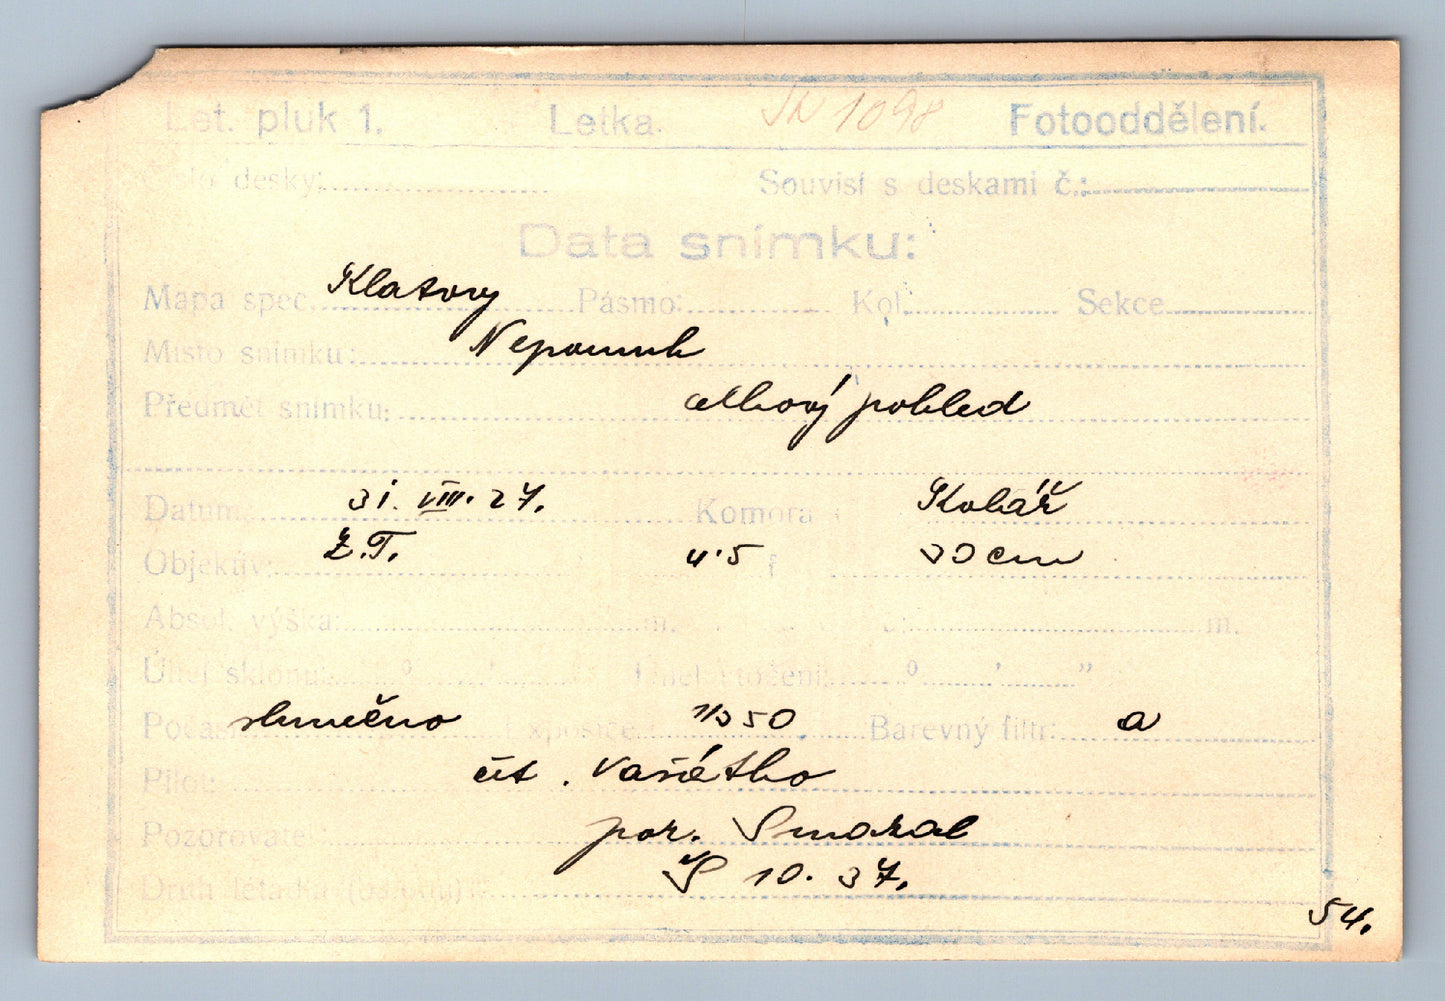 Let. pluk 1. Letka. JN 1098 Fotooddělení.
Číslo desky: Souvisí s deskami č.:
Data snímku:
Mapa spec. Klatovy Pásmo: Kol. Sekce
Místo snímku: Nepomuk
Předmět snímku: celkový pohled
Datum: 31. VIII. 27. Komora: Kolář
Objektiv: Z.T. 4.5 f 30 cm
Absol. výška: m. m.
Úhel sklonu: ° ' Úhel stočení: ° ' "
Počasí: slunečno Exposice: 1/350 Barevný filtr: a
Pilot: čet.
Pozorovatel: por. Smazal
Druh letadla Š 10. 37.
54.